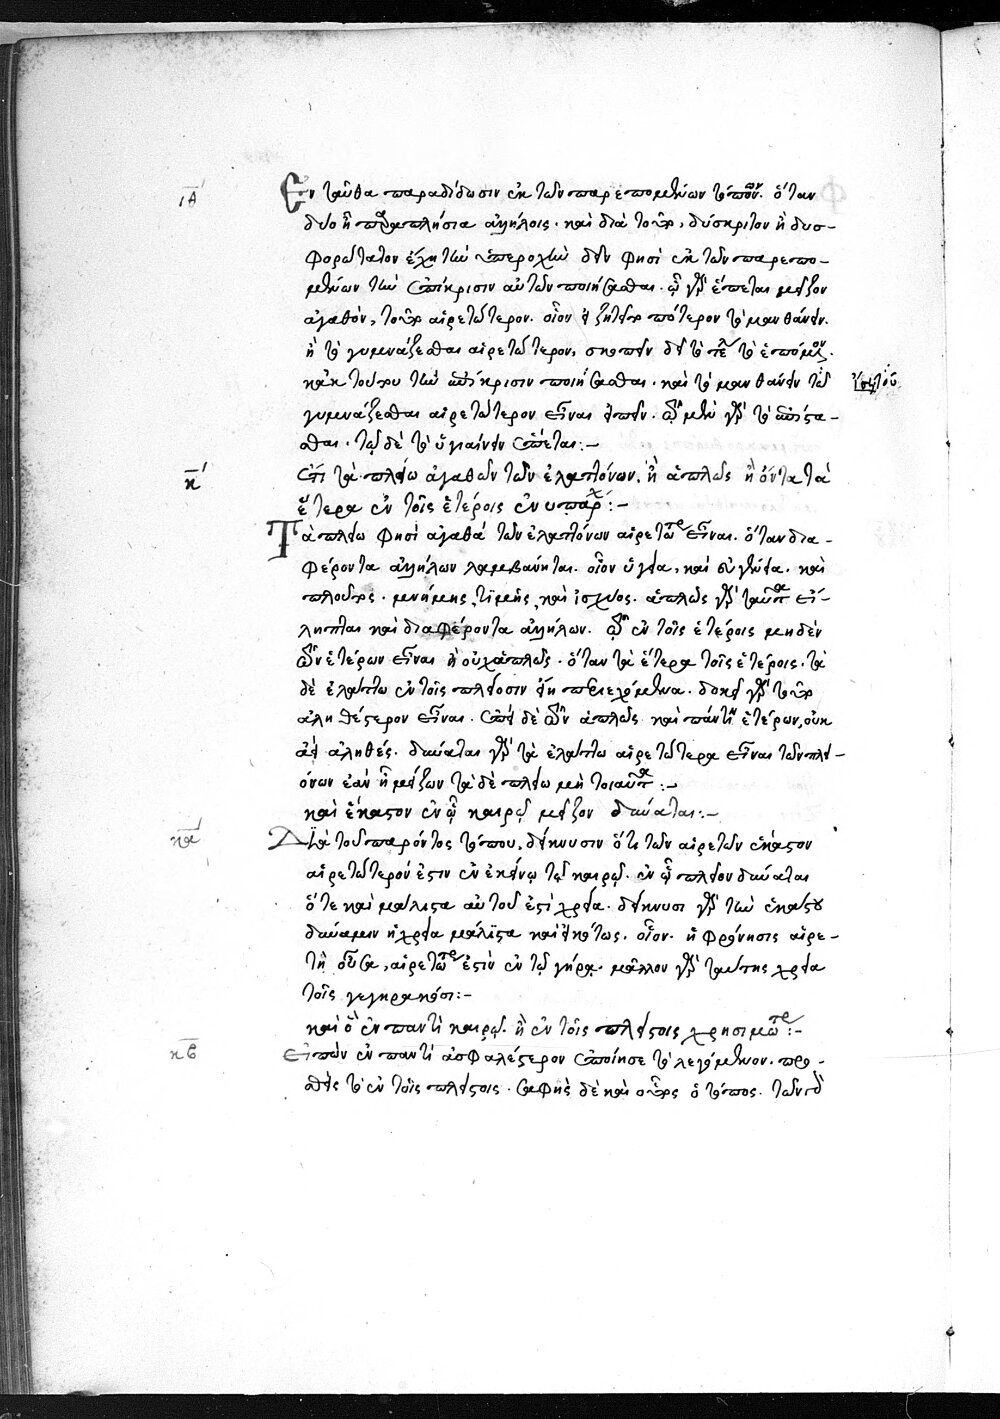 ιθ´ Ἐνταῦθα παραδίδωσιν ἐκ τῶν παρεπομένων τόπον. ὅταν
δύο ᾖ παραπλήσια ἀλλήλοις. καὶ διὰ τοῦτο, δύσκριτον ἢ δυσ-
φορώτατον ἔχῃ τὴν ὑπεροχὴν δεῖν φησὶ ἐκ τῶν παρεπο-
μένων τὴν ἐπίκρισιν αὐτῶν ποιήσασθαι. ᾧ γὰρ ἕπεται μεῖζον
ἀγαθὸν, τοῦτο αἱρετώτερον. οἷον εἰ ζητεῖται πότερον τὸ μανθάνειν.
ἢ τὸ γυμνάζεσθαι αἱρετώτερον, σκοπεῖν δεῖ τὸ τέλος τὸ ἑπόμενον.
κἀκ τούτου τὴν ἐπίκρισιν ποιήσασθαι. καὶ τὸ μανθάνειν τοῦ
γυμνάζεσθαι αἱρετώτερον εἶναι εἰπεῖν. τῷ μὲν γὰρ τὸ ἐπίστα-
σθαι. τῷ δὲ τὸ ὑγιαίνειν ἕπεται:-
κ´ ἔτι τὰ πλείω ἀγαθῶν τῶν ἐλαττόνων. ἢ ἁπλῶς ἢ ὄντα τὰ
ἕτερα ἐν τοῖς ἑτέροις ἐνυπάρχ:-
Τὰ πλείω φησὶ ἀγαθὰ τῶν ἐλαττόνων αἱρετώτερα εἶναι. ὅταν δια-
φέροντα ἀλλήλων λαμβάνηται. οἷον ὑγεία, καὶ εὐγένεια. καὶ
πλοῦτος. μνήμης, τιμῆς, καὶ ἰσχύος. ἁπλῶς γὰρ ταῦτα εἴ-
ληπται καὶ διαφέροντα ἀλλήλων. τῶν ἐν τοῖς ἑτέροις μηδὲν
τῶν ἑτέρων εἶναι ἢ οὐχ ἁπλῶς. ὅταν τὰ ἕτερα τοῖς ἑτέροις. τὰ
δὲ ἐλάττω ἐν τοῖς πλείοσιν ᾖ περιεχόμενα. δοκεῖ γὰρ τοῦτο
ἀληθέστερον εἶναι. ἐπεὶ δὲ τῶν ἁπλῶς καὶ πάντη ἑτέρων, οὐκ
ἀεὶ ἀληθές. δύναται γὰρ τὰ ἐλάττω αἱρετώτερα εἶναι τῶν πλει-
όνων ἐὰν ᾖ μείζων τὰ δὲ πλείω μὴ τοιαῦτα:-
καὶ ἕκαστον ἐν ᾧ καιρῷ μεῖζον δύναται:-
κα´ Διὰ τοῦ παρόντος τόπου, δείκνυσιν ὅτι τῶν αἱρετῶν ἕκαστον
αἱρετώτερόν ἐστιν ἐν ἐκείνῳ τῷ καιρῷ. ἐν ᾧ πλέον δύναται
ὅτε καὶ μάλιστα αὐτοῦ ἐστὶ χρεία. δείκνυσι γὰρ τὴν ἑκάστου
δύναμιν ἡ χρεία μάλιστα καὶ εἰκότως. οἷον. ἡ φρόνησις αἱρε-
τὴ οὖσα, αἱρετωτέρα ἐστὶν ἐν τῷ γήρᾳ. μᾶλλον γὰρ ταύτης χρεία
τοῖς γεγηρακόσι:-
καὶ ὃ ἐν παντὶ καιρῷ. ἢ ἐν τοῖς πλείστοις χρησιμώτερον:-
κβ Εἰπὼν ἐν παντὶ ἀσφαλέστερον ἐποίησε τὸ λεγόμενον. προσ-
θεὶς τὸ ἐν τοῖς πλείστοις. σαφὴς δὲ καὶ οὗτος ὁ τόπος. τῶν γὰρ